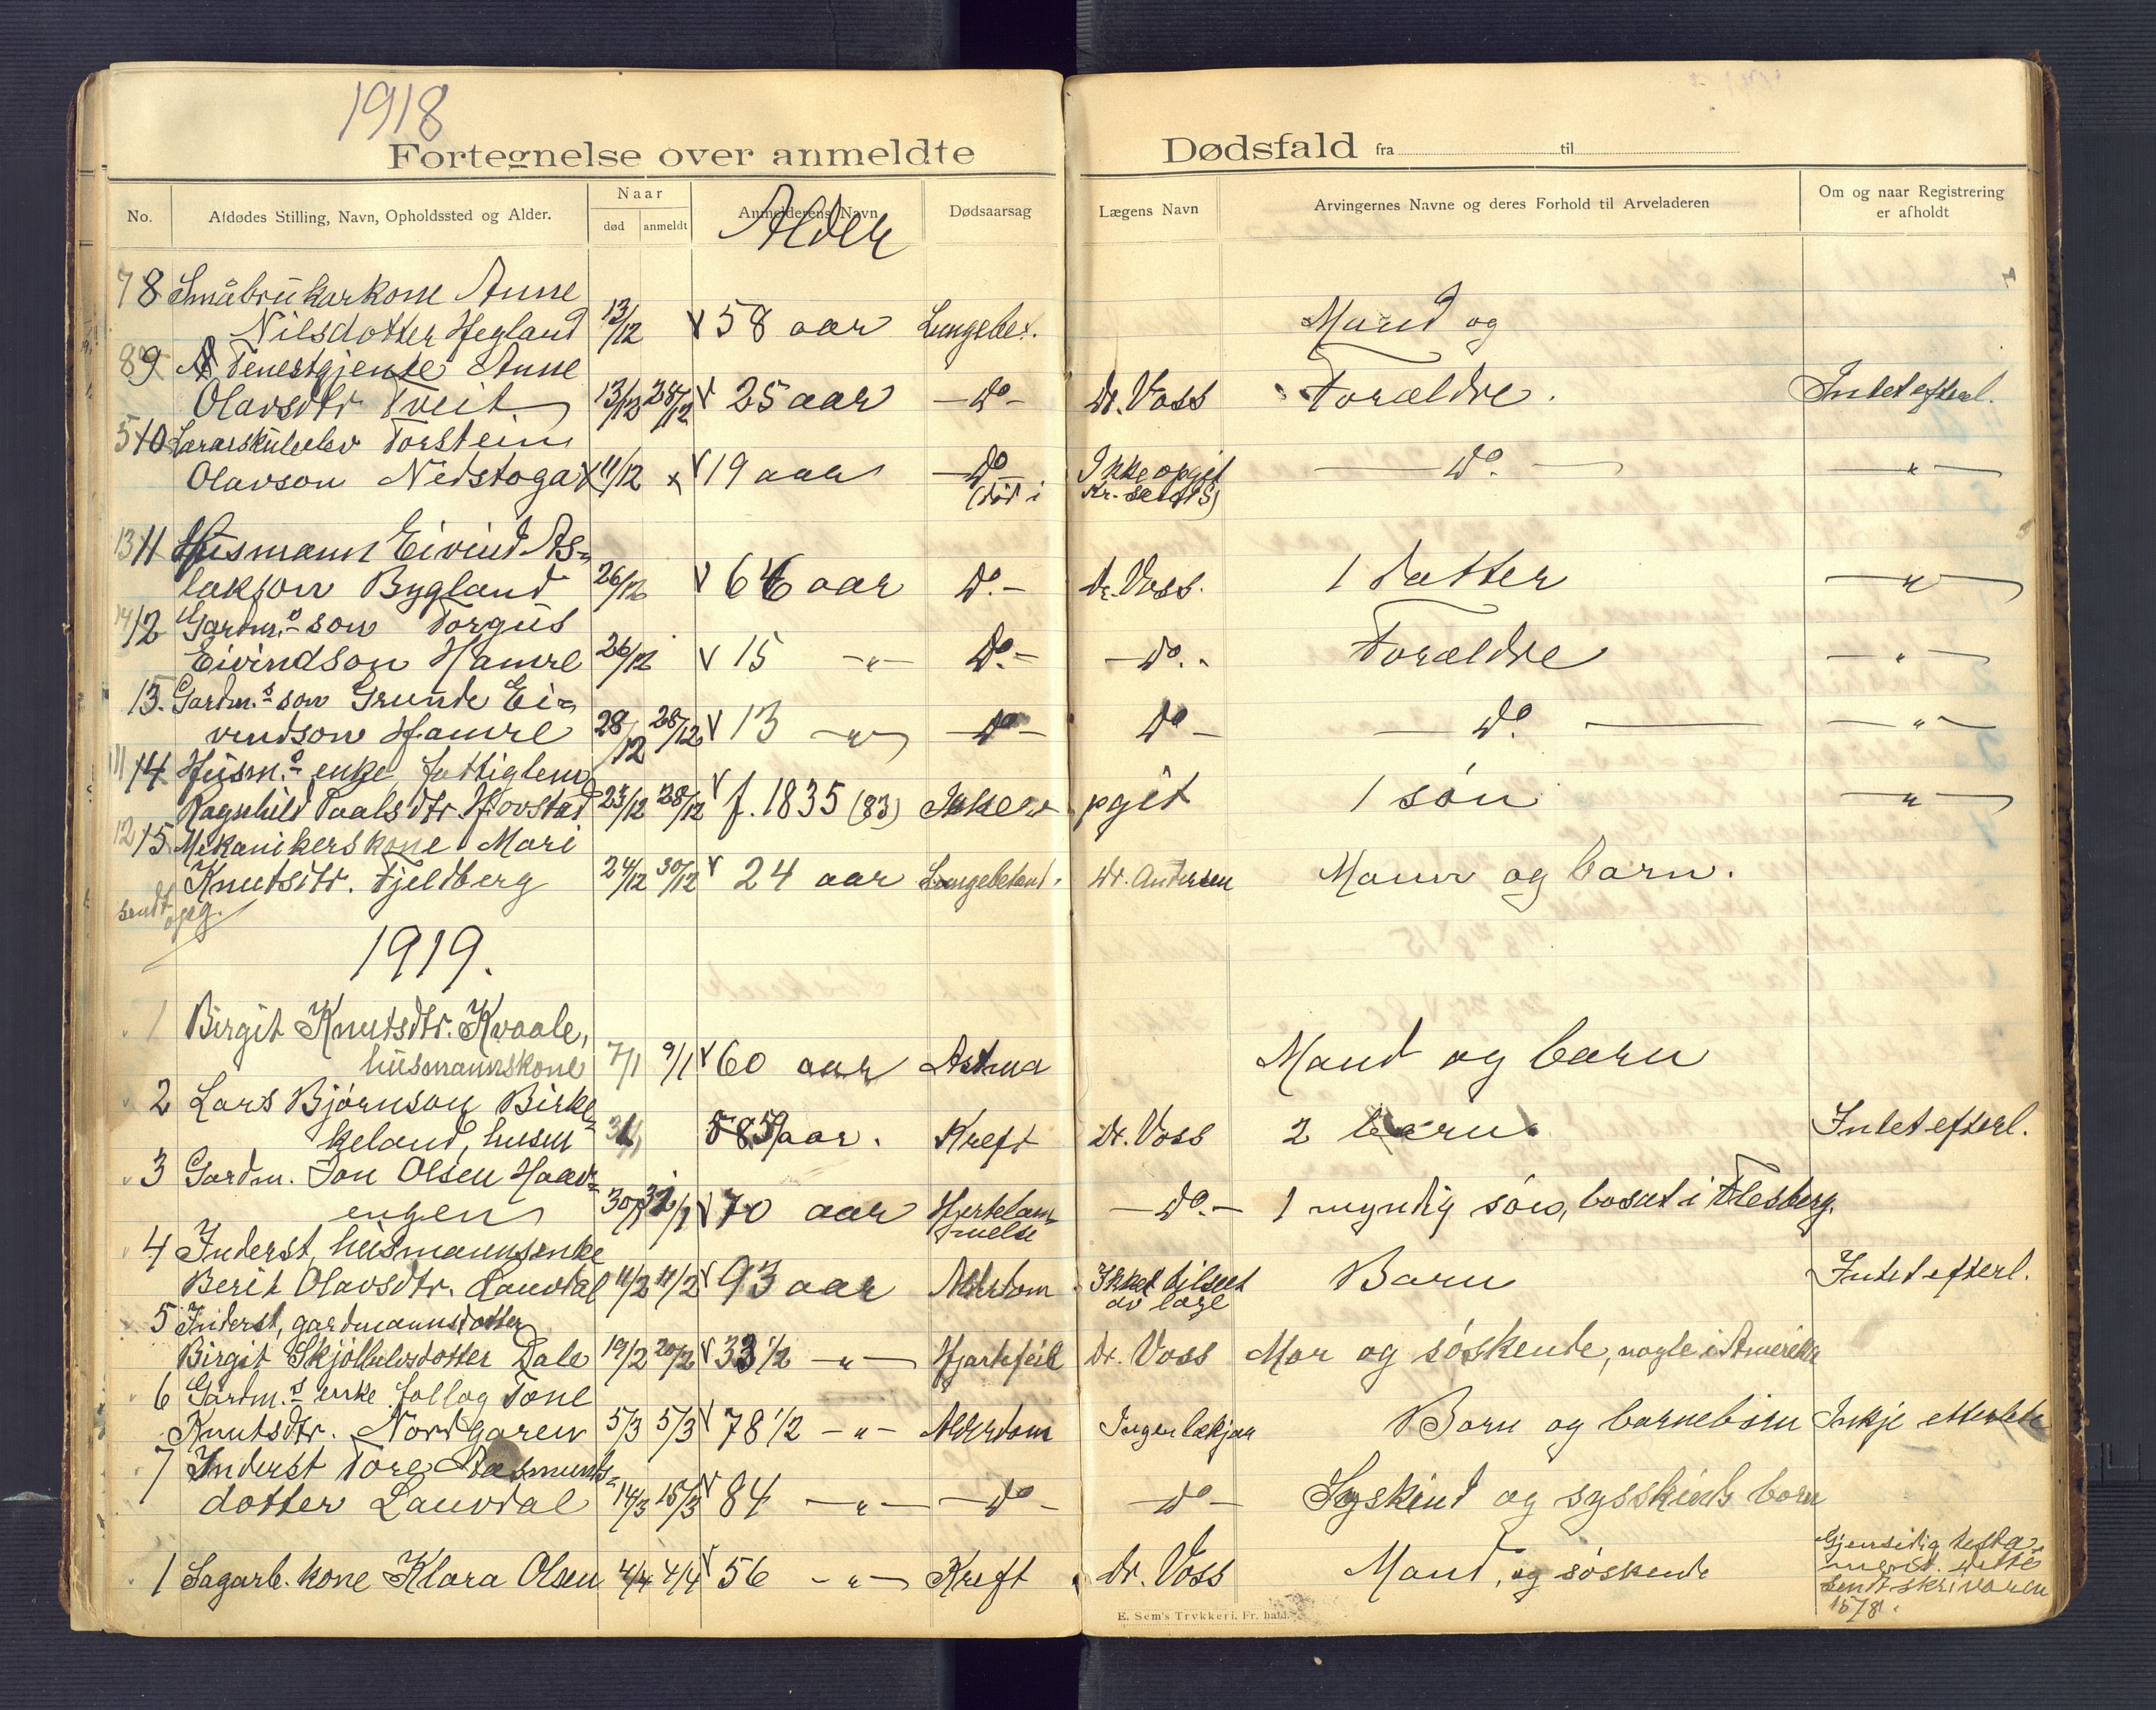 1918
Fortegnelse over anmeldte Dødsfald fra til
No.
Afdødes Stilling, Navn, Opholdssted og Alder.
Naar
død anmeldt
Anmelderens Navn
Alder
Dødsaarsag
Lægens Navn
Arvingernes Navne og deres Forhold til Arveladeren
Om og naar Registrering
er afholdt
7 8 Småbrukarkone Anne
Nilsdotter Hegland 13/12 58 aar Lungebet. Mand og
8 9 Tenestgjente Anne
Olavsdtr Tveit 13/12 28/12 25 aar - do - Dr. Voss Forældre. Intet efterl.
5 10 Lærarskuleelev Torstein
Olavson Nedstoga 11/12 19 aar - do - Ikke opgit - do. - - " -
(død i Kr.sand S)
13 11 Husmann Eivind As-
lakson Bygland 26/12 66 aar do. - Dr. Voss. 1 datter - " -
14 12 Gardm.s son Torgus
Eivindson Hamre 26/12 15 - " - do. - - do. - Forældre - " -
13. Gardm.s son Grunde Ei-
vindson Hamre 28/12 28/12 13 - " - - do - do - - do. - - " -
11 14 Husm.s enke, fattiglem
Ragnhild Paalsdtr. Hovstad 23/12 28/12 f. 1835 (83) Ikke opgit 1 søn - " -
12 15 Mekanikerskone Mari
Knutsdtr. Fjeldberg 24/12 30/12 24 aar Lungebetend. Dr. Andersen Mann og barn.
sendt
1919.
1 Birgit Knutsdtr. Kvaale,
husmannskone 7/1 9/1 60 aar Astma Mand og barn
2 Lars Bjørnson Birke-
keland, husm 59 aar. Kreft Dr. Voss 2 barn. Intet efterl.
3 Gardm. Jon Olsen Haav-
engen 70 aar Hjertelam-
melse - do. - 1 myndig søn, bosat i Flesberg.
4 Inderst, husmannsenke
Berit Olavsdtr. Lauvdal 11/2 11/2 93 aar Alderdom Ikke tilseet
av læge Barn Intet efterl.
5 Inderst, gardmannsdotter
Birgit Skjøllulvsdotter Dale 19/2 20/2 33 1/2 - " - Hjartefeil Dr. Voss Mor og søskende, nogle i Amerika
6 Gardm.s enke follog Tone
Knutsdtr. Nordgaren 5/3 5/3 78 1/2 - " - Alderdom Ingen lækjar Born og barneborn Inkje etterlete
7 Inderst Tore Aasmunds-
dotter Lauvdal 14/3 15/3 84 - " - - do - - do - Syskind og sysskinds born
1 Sagarb. kone Klara Olsen 4/4 4/4 56 - " - Kreft Dr. Voss Mand, og søskende Gjensidig testa-
ment. Dette
sendt skrivaren
15/8.
E. Sem's Trykkeri. Fr. hald.